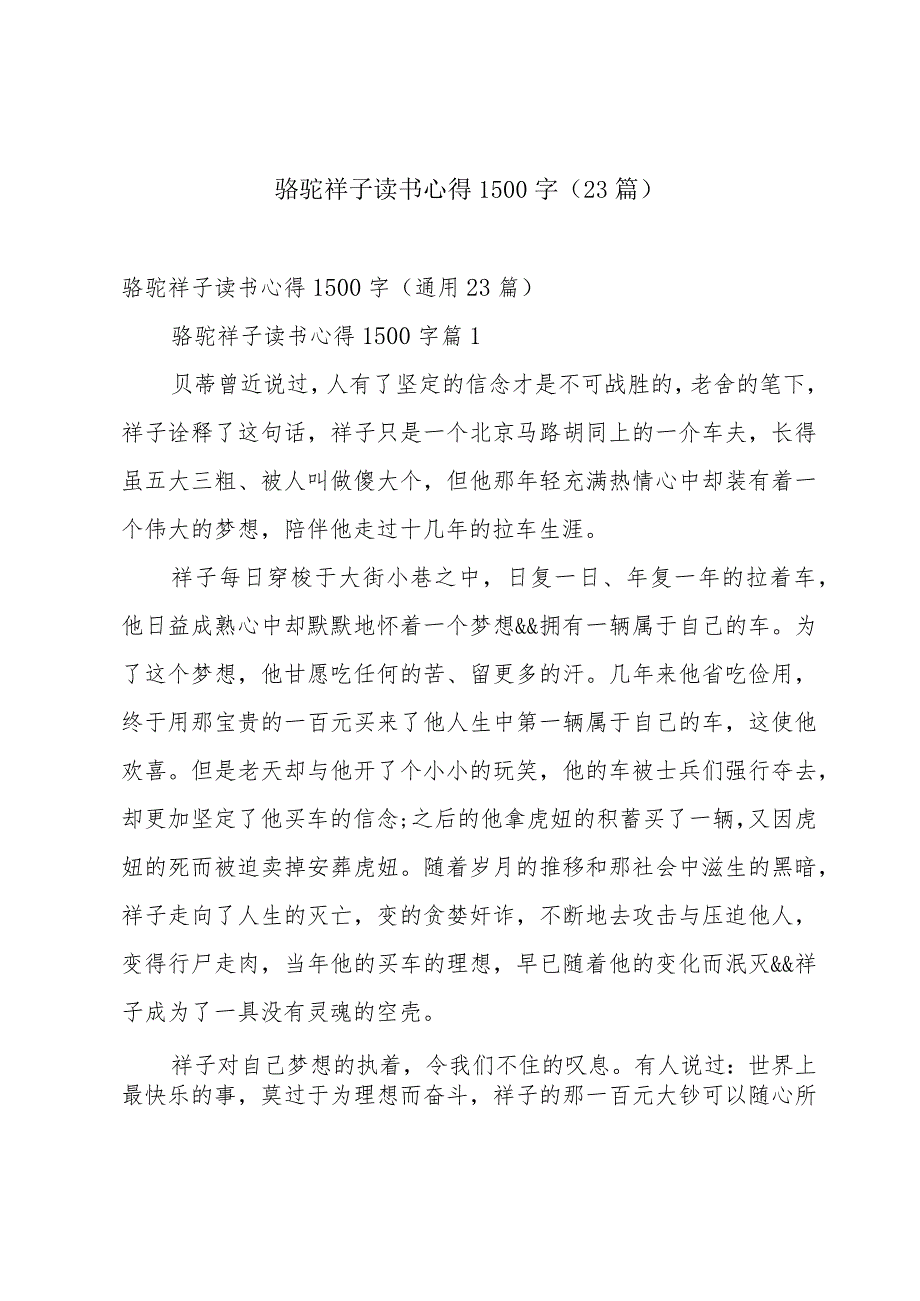 骆驼祥子读书心得1500字（23篇）
骆驼祥子读书心得1500字（通用23篇）
骆驼祥子读书心得1500字篇1
贝蒂曾近说过，人有了坚定的信念才是不可战胜的，老舍的笔下，
祥子诠释了这句话，祥子只是一个北京马路胡同上的一介车夫，长得
虽五大三粗、被人叫做傻大个，但他那年轻充满热情心中却装有着一
个伟大的梦想，陪伴他走过十几年的拉车生涯。
祥子每日穿梭于大街小巷之中，日复一日、年复一年的拉着车，
他日益成熟心中却默默地怀着一个梦想&&拥有一辆属于自己的车。为
了这个梦想，他甘愿吃任何的苦、留更多的汗。几年来他省吃俭用，
终于用那宝贵的一百元买来了他人生中第一辆属于自己的车，这使他
欢喜。但是老天却与他开了个小小的玩笑，他的车被士兵们强行夺去，
却更加坚定了他买车的信念;之后的他拿虎妞的积蓄买了一辆,又因虎
妞的死而被迫卖掉安葬虎妞。随着岁月的推移和那社会中滋生的黑暗，
祥子走向了人生的灭亡，变的贪婪奸诈，不断地去攻击与压迫他人，
变得行尸走肉，当年他的买车的理想，早已随着他的变化而泯灭&&祥
子成为了一具没有灵魂的空壳。
祥子对自己梦想的执着，令我们不住的叹息。有人说过：世界上
最快乐的事，莫过于为理想而奋斗，祥子的那一百元大钞可以随心所